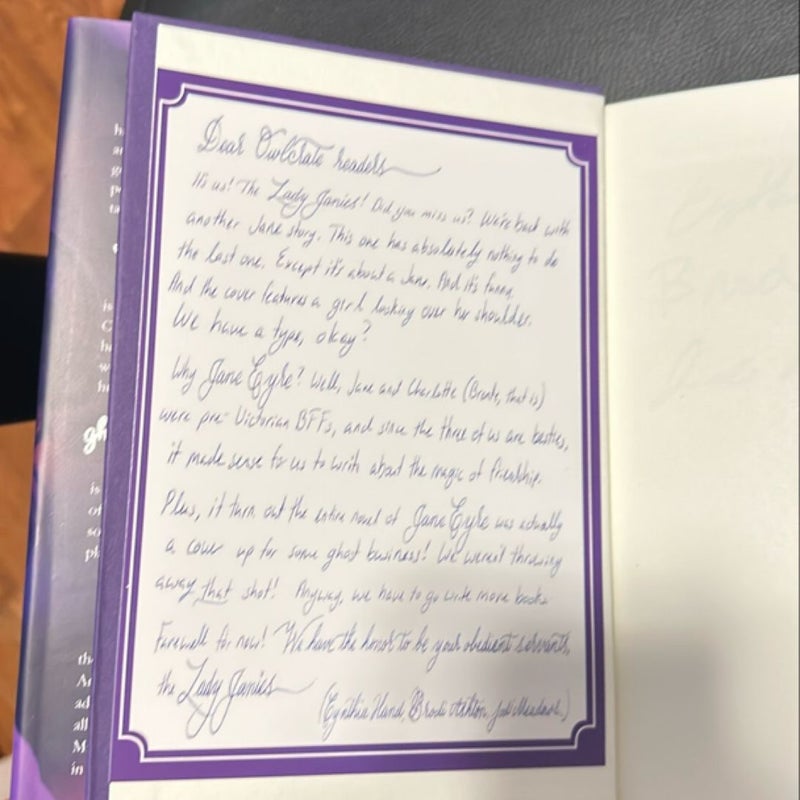 Dear OwlCrate readers
It's us! The Lady Janies! Did you miss us? We're back with
another Jane story. This one has absolutely nothing to do
the last one. Except it's about a Jane. And it's funny.
And the cover features a girl looking over her shoulder.
We have a type, okay?
Why Jane Eyre? Well, Jane and Charlotte (Bronte, that is)
were pre-Victorian BFFs, and since the three of us are besties,
it made sense to us to write about the magic of friendship.
Plus, it turn out the entire novel of Jane Eyre was actually
a cover up for some ghost business! We weren't throwing
away that shot! Anyway, we have to go write more books
Farewell for now! We have the honor to be your obedient servants,
the Lady Janies
(Cynthia Hand, Brodi Ashton, Jodi Meadows)